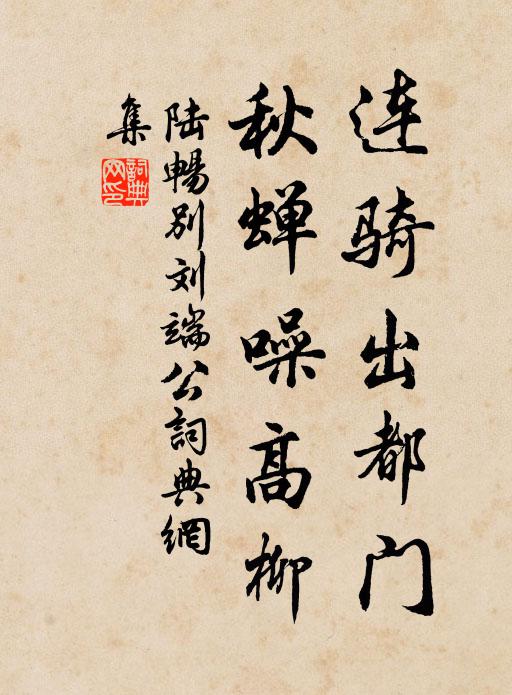 连骑出都门
秋蝉噪高柳
陆畅别刘端公詞典網
集
詞典網印